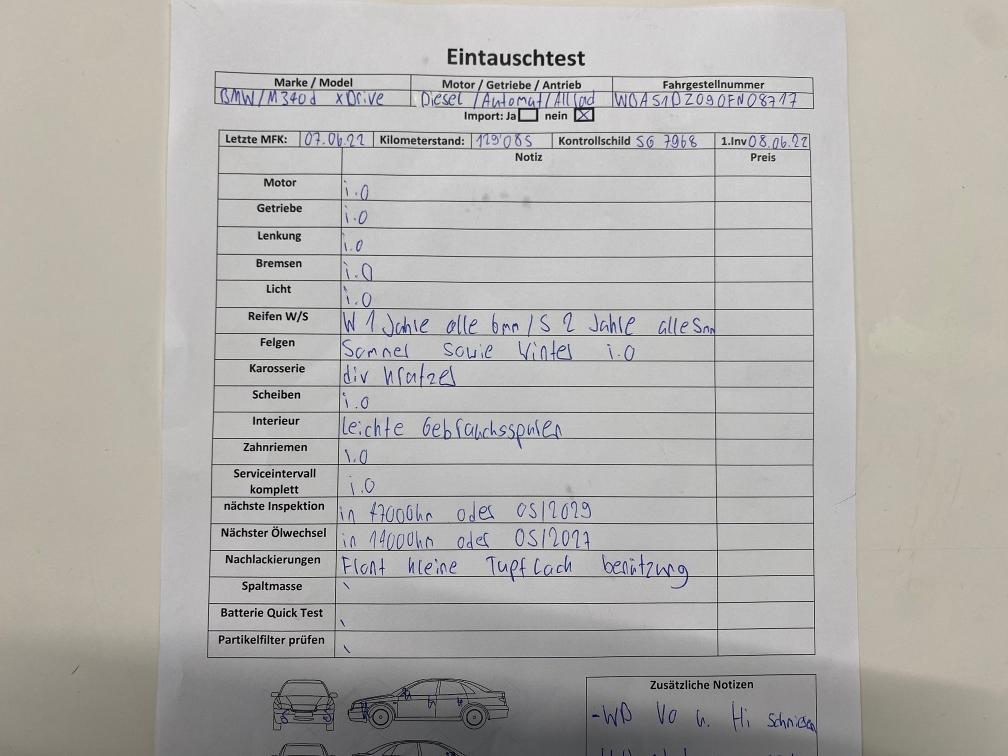 Eintauschtest
Marke / Model Motor / Getriebe / Antrieb Fahrgestellnummer
BMW/M340d xDrive Diesel /Automat/Allrad
Import: Ja nein
Letzte MFK: 07.06.22 Kilometerstand: 129'085 Kontrollschild SG 7968 1.Inv 08.06.22
Notiz Preis
Motor i.O
Getriebe i.O
Lenkung i.O
Bremsen i.O
Licht i.O
Reifen W/S W 1 Jahre alle 6mm / S 2 Jahre alle 5mm
Felgen Sommer sowie Winter i.O
Karosserie div Kratzer
Scheiben i.O
Interieur leichte Gebrauchsspuren
Zahnriemen i.O
Serviceintervall
komplett i.O
nächste Inspektion in oder 05/2029
Nächster Ölwechsel in 14000km oder 05/2027
Nachlackierungen Front kleine Tupf Lack
Spaltmasse
Batterie Quick Test
Partikelfilter prüfen
Zusätzliche Notizen
- Vo u. Hi